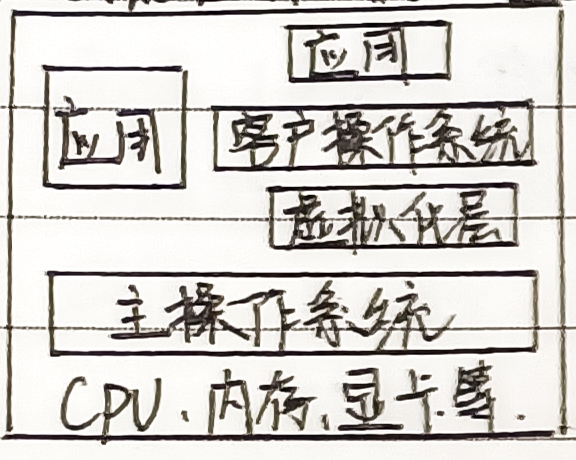 应用
应用
客户操作系统
虚拟化层
主操作系统
CPU、内存、显卡等.